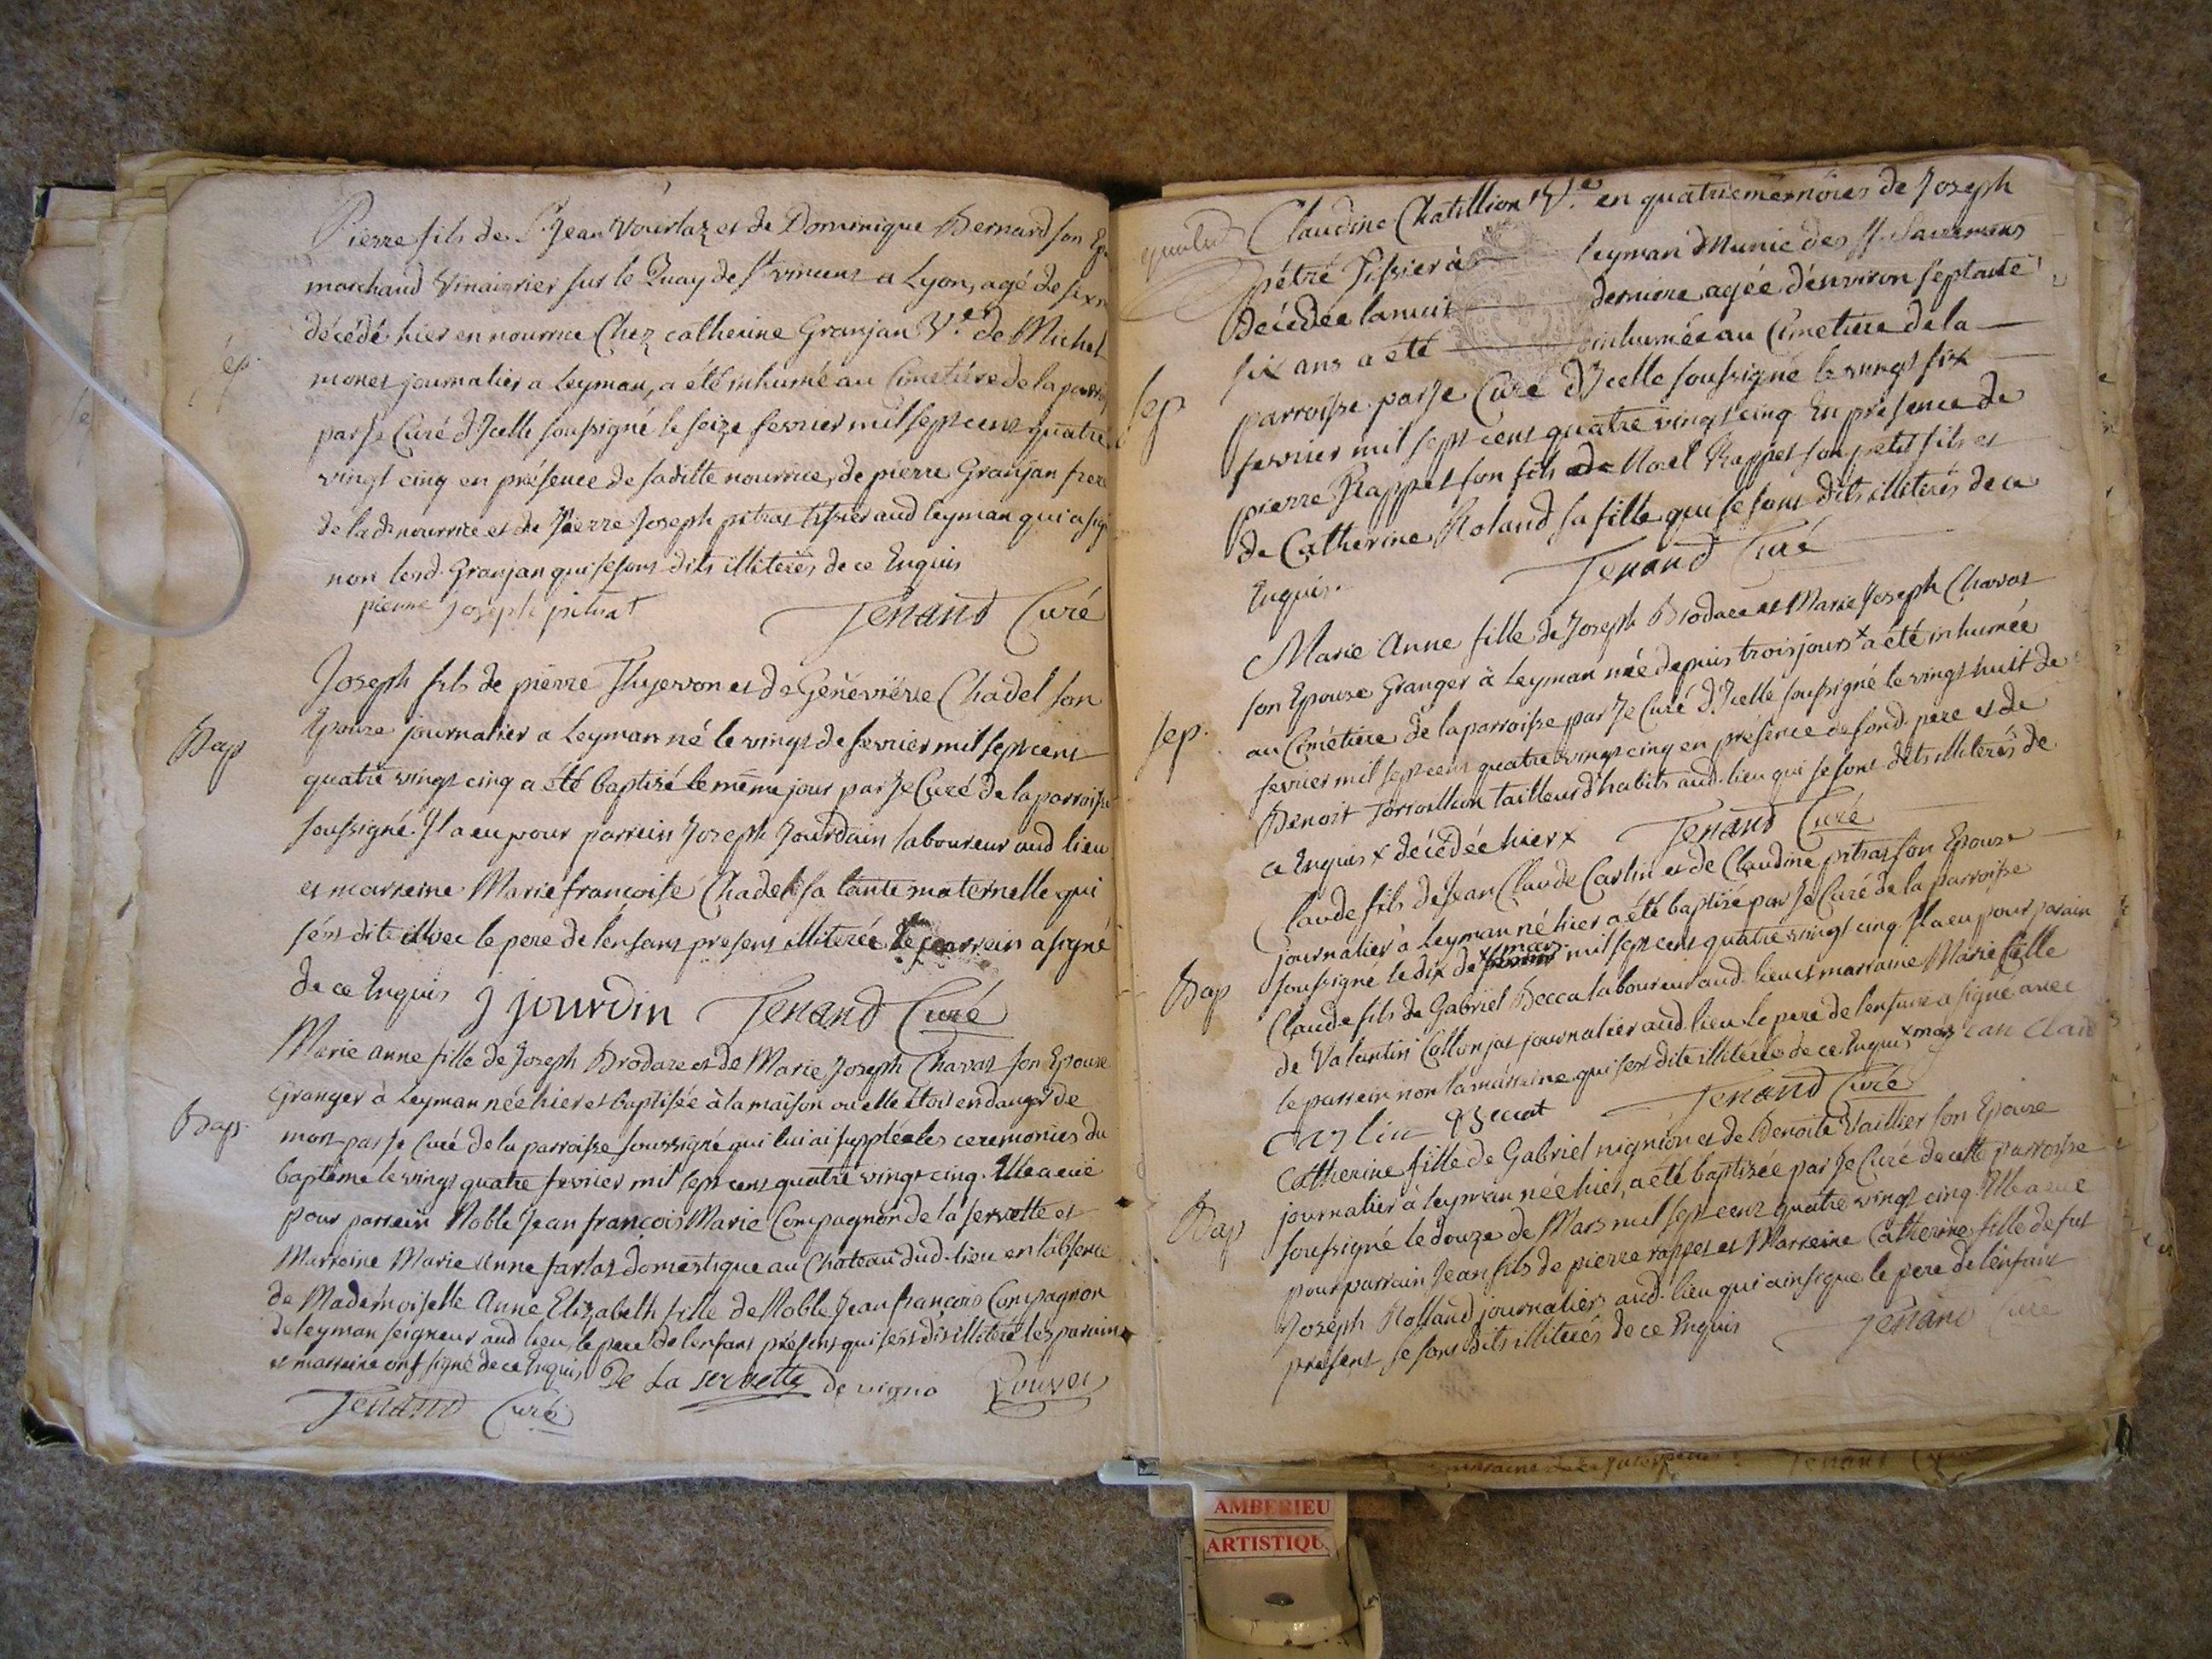 Pierre fils de Sr Jean Vourlaz et de Dominique Bernard son Ep
marchand Vinaigrier sur le Quay de St vincent a Lyon, agé de six
décédé hier en nourrice Chez catherine Granjan Ve de Michel
monet journalier a Leyman, a été inhumé au Cimetiére de la parroi
par Je Curé d'Icelle soussigné le seize fevrier mil sept cent quatre
vingt cinq en présence de sa ditte nourrice, de pierre Granjan frere
de la de nourrice et de Pierre Joseph pitrat tissier aud leyman qui a sig
non lesd. Granjan qui se sont dits illiterés de ce Enquis
pierre Joseph pitrat Tenand Curé
Sep.
Joseph fils de pierre Thyevon et de Geneviéve Chadel son
Bap
Epouse journalier a Leyman né le vingt de fevrier mil sept cent
quatre vingt cinq a été baptizé le même jour par Je Curé de la parroisse
soussigné. Il a eu pour parrein Joseph Jourdain laboureur aud lieu
et marreine Marie françoise Chadel sa tante maternelle qui
s'est dite avec le pere de l'enfant present illiterée le parrein a signé
de ce Enquis J jourdin Tenand Curé
Marie anne fille de Joseph Brodaz et de Marie Joseph Chavat son Epouse
Granger à Leyman née hier et baptisée à la maison ou elle étoit en danger de
Bap.
mort par Je Curé de la parroisse soussigné qui lui ai suppléé les ceremonies du
baptême le vingt quatre fevrier mil sept cent quatre vingt cinq. Elle a eüe
pour parrein Noble Jean françois Marie Compagnon de la servette et
Marreine Marie Anne farlat domestique au Chateau dud. lieu en l'absence
de Mademoiselle Anne Elizabeth fille de Noble Jean françois Compagnon
de leyman seigneur aud lieu, le pere de l'enfant présent qui s'est dit illiteré les parrain
et marreine ont signé de ce Enquis De La servette de vigno
Tenand Curé
Claudine Chatillion Ve en quatriemes nôces de Joseph
pétré Tissier à Leyman Munie des SS. Sacremens
décédée la nuit derniere agée d'environ septante
six ans a été inhumée au Cimetiere de la
Sep
parroisse par Je Curé d'Icelle soussigné le vingt six
fevrier mil sept cent quatre vingt cinq En présence de
pierre Rappet son fils de Noel Rappet son petit fils et
de Catherine Roland sa fille qui se sont dits illiterés de ce
Enquis. Tenand Curé
Marie Anne fille de Joseph Brodaz et Marie Joseph Chavat
son Epouse Granger à Leyman née depuis trois jours x a été inhumée
Sep.
au Cimétiere de la parroisse par Je Curé d'Icelle soussigné le vingt huit de
fevrier mil sept cent quatre vingt cinq en présence de son d. pere et de
Benoit Torroillion tailleur d'habits aud. lieu qui se sont dits illiterés de
ce Enquis x décédée hier x Tenand Curé
Claude fils de Jean Claude Carlin et de Claudine pitrat son Epouse
journalier à Leyman né hier a été baptizé par Je Curé de la parroisse
Bap
soussigné le dix de x mars mil sept cent quatre vingt cinq Il a eu pour parain
Claude fils de Gabriel Becca laboureur aud. lieu et marraine Marie fille
de Valantin Collonjat journalier aud. lieu le pere de l'enfant a signé avec
le parrein non la marreine qui s'est dite illiterée de ce Enquis x mars Jean Claud
Carlin Becat Tenand Curé
Catherine fille de Gabriel nignion et de Benoite Vaillier son Epouse
journalier à leyman née hier, a été baptizée par Je Curé de cette parroisse
Bap
soussigné le douze de Mars mil sept cent quatre vingt cinq. Elle a eue
pour parrain Jean fils de pierre rappet et Marreine Catherine fille de fut
Joseph Rolland journaliers aud. lieu qui ainsi que le pere de l'enfant
present se sont dits illiterés de ce Enquis Tenand Curé
AMBERIEU
ARTISTIQU